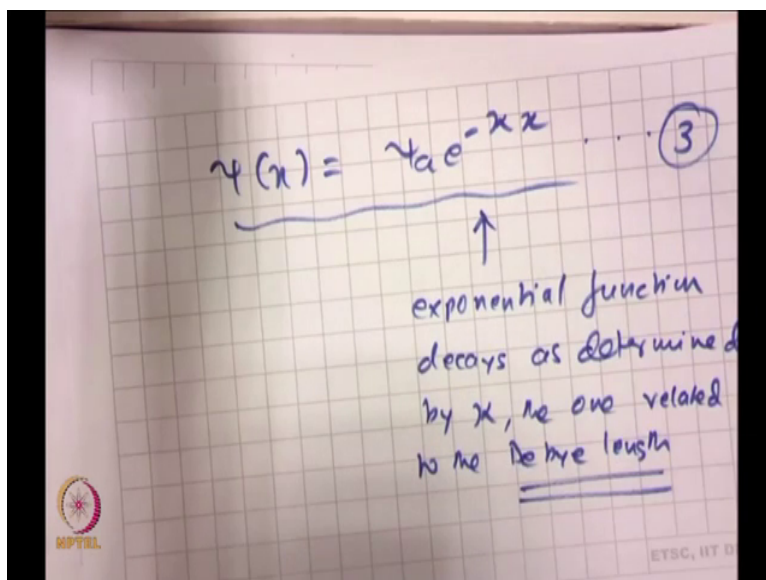 ψ(x) = ψa e^-ϰx ... ③
exponential function
decays as determined
by ϰ, the one related
to the Debye length
NPTEL
ETSC, IIT D